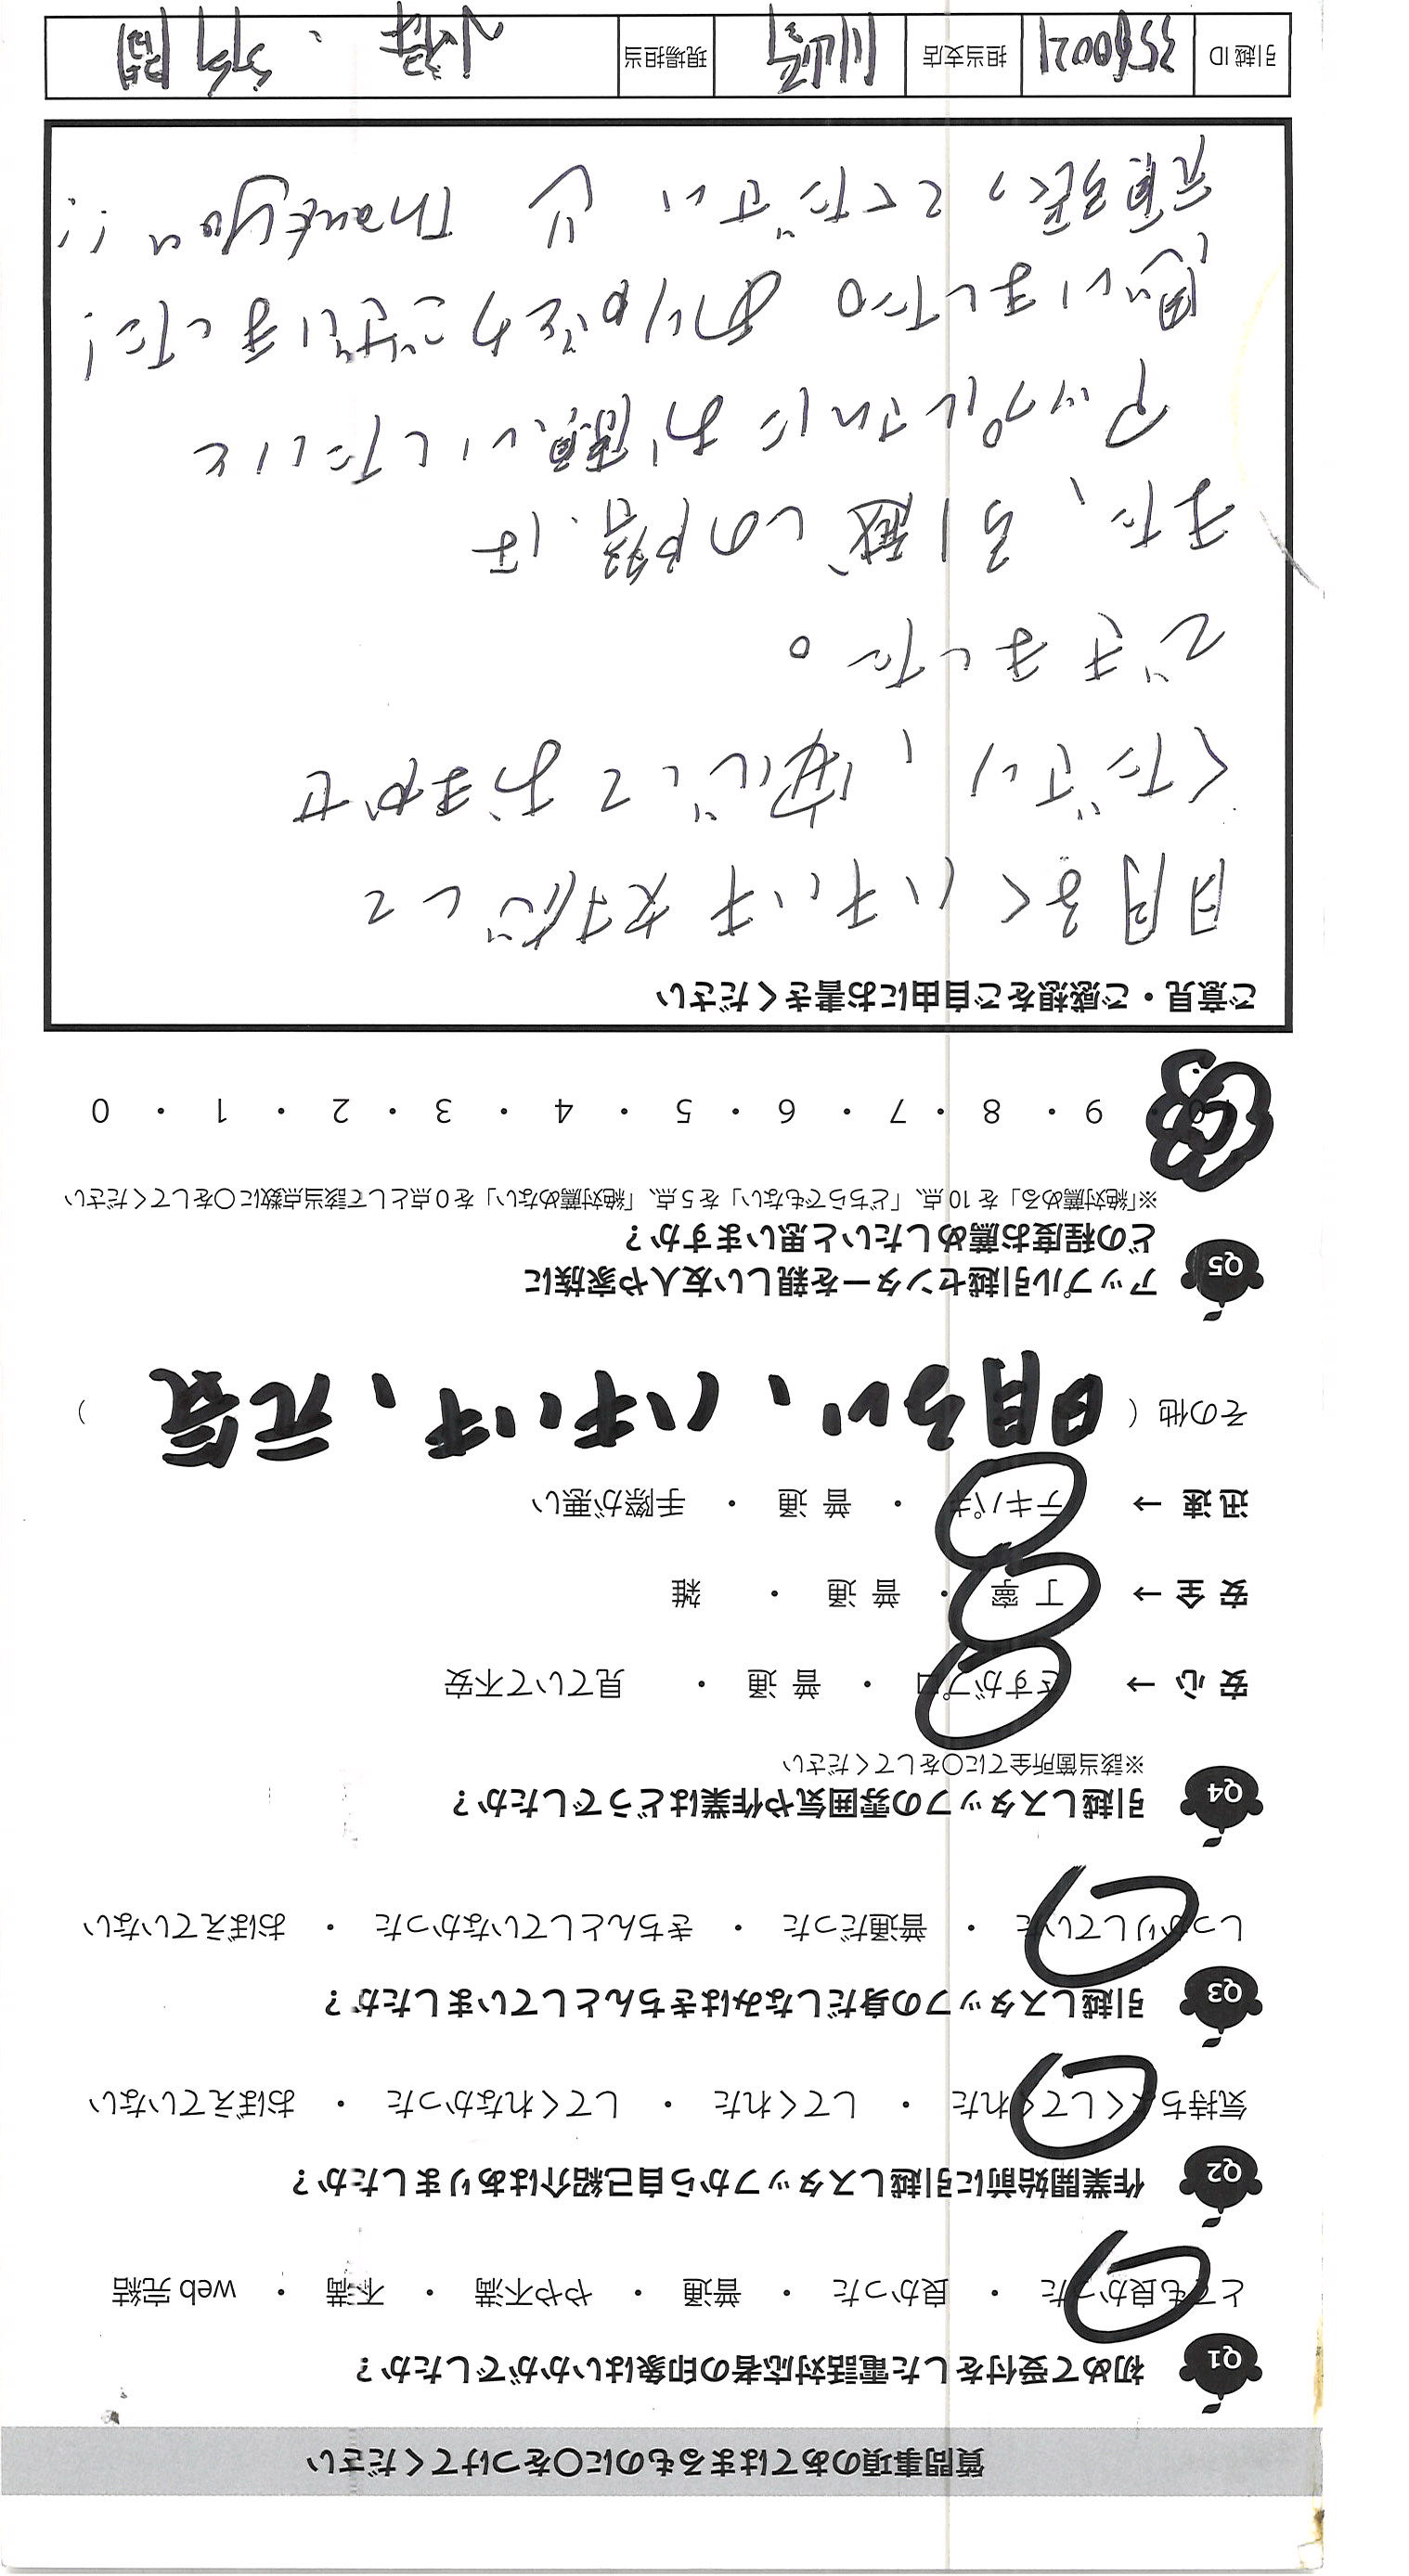 質問事項のあてはまるものに○をつけてください
Q1 初めて受付をした電話対応者の印象はいかがでしたか？
とても良かった ・ 良かった ・ 普通 ・ やや不満 ・ 不満 ・ web 完結
Q2 作業開始前に引越しスタッフから自己紹介はありましたか？
気持ちよくしてくれた ・ してくれた ・ してくれなかった ・ おぼえていない
Q3 引越しスタッフの身だしなみはきちんとしていましたか？
しっかりしていた ・ 普通だった ・ きちんとしていなかった ・ おぼえていない
Q4 引越しスタッフの雰囲気や作業はどうでしたか？
※該当箇所全てに○をしてください
安 心 → さすがプロ ・ 普 通 ・ 見ていて不安
安 全 → 丁 寧 ・ 普 通 ・ 雑
迅 速 → テキパキ ・ 普 通 ・ 手際が悪い
その他 ( 明るい、ハキハキ、元気 )
Q5 アップル引越センターを親しい友人や家族に
どの程度お薦めしたいと思いますか？
※「絶対薦める」を 10 点、「どちらでもない」を 5 点、「絶対薦めない」を 0 点として該当点数に○をしてください
10 ・ 9 ・ 8 ・ 7 ・ 6 ・ 5 ・ 4 ・ 3 ・ 2 ・ 1 ・ 0
ご意見・ご感想をご自由にお書きください
明るくハキハキ対応して
くださり、安心しておまかせ
できました。
また、引越しの際は
アップルさんにお願いしたいと
思いました。ありがとうございました!
頑張ってください Thank you !!
引越 ID 担当支店 川崎 現場担当